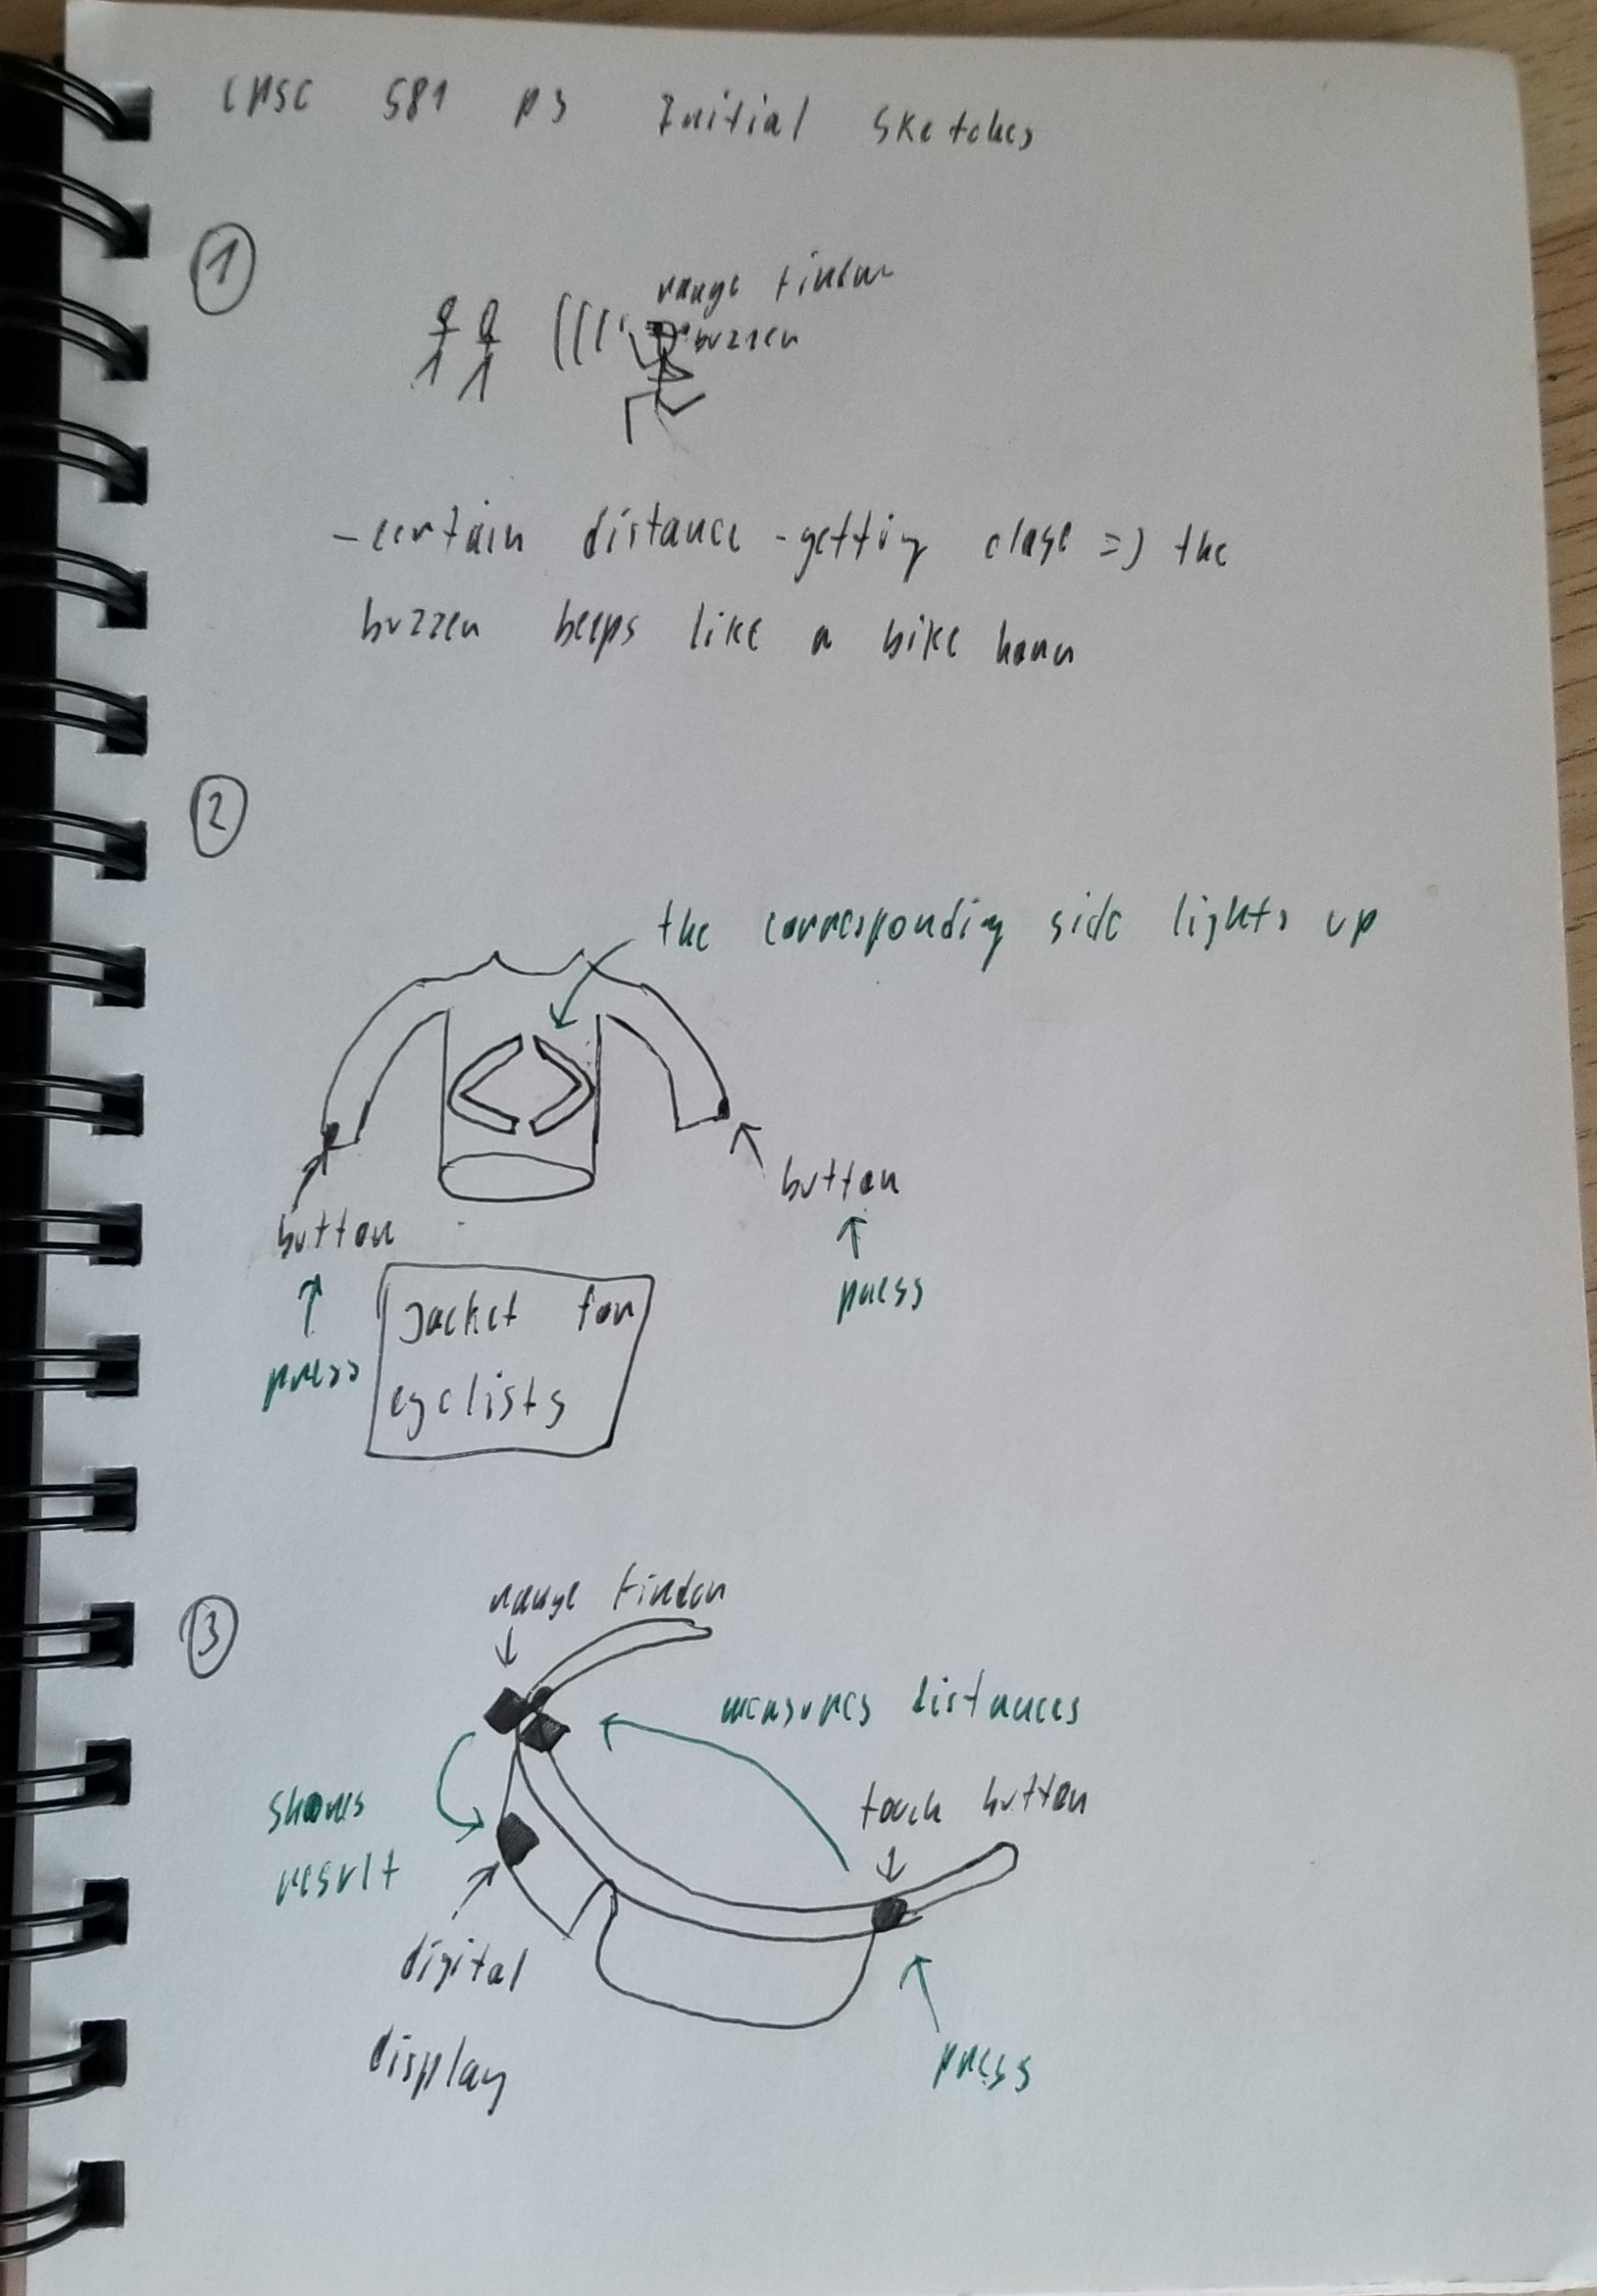 CPSC 581 P3 Initial Sketches
1
range finder
buzzer
- certain distance - getting close => the
buzzer beeps like a bike horn
2
the corresponding side lights up
button
button
press
press
Jacket for
cyclists
3
range finder
measures distances
touch button
shows
result
digital
display
press